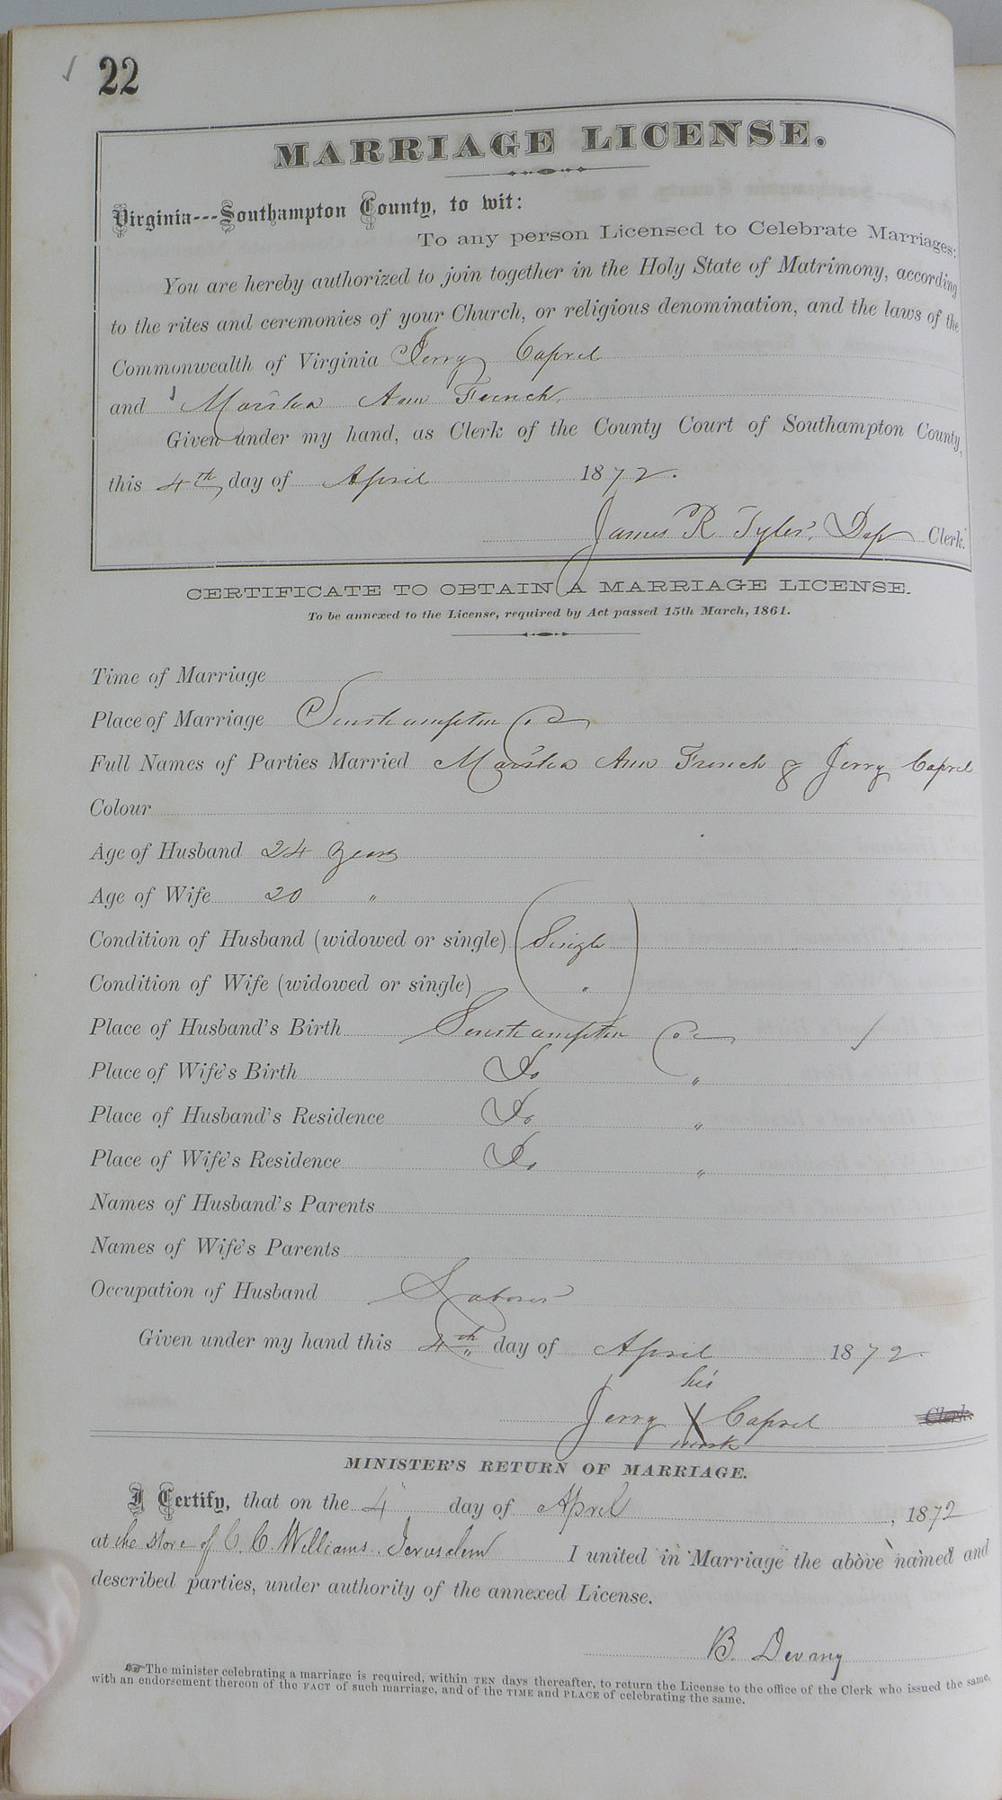 22
MARRIAGE LICENSE.
Virginia---Southampton County, to wit:
To any person Licensed to Celebrate Marriages:
You are hereby authorized to join together in the Holy State of Matrimony, according
to the rites and ceremonies of your Church, or religious denomination, and the laws of the
Commonwealth of Virginia Jerry Caprel
and Ann French
Given under my hand, as Clerk of the County Court of Southampton County,
this 4th day of April 1872.
James R Tyler, Dep Clerk.
CERTIFICATE TO OBTAIN A MARRIAGE LICENSE.
To be annexed to the License, required by Act passed 15th March, 1861.
Time of Marriage
Place of Marriage Southampton Co
Full Names of Parties Married Ann French & Jerry Caprel
Colour
Age of Husband 24 years
Age of Wife 20 "
Condition of Husband (widowed or single) Single
Condition of Wife (widowed or single) "
Place of Husband's Birth Southampton Co
Place of Wife's Birth Do "
Place of Husband's Residence Do "
Place of Wife's Residence Do "
Names of Husband's Parents
Names of Wife's Parents
Occupation of Husband Laborer
Given under my hand this 4th day of April 1872.
his
Jerry X Caprel Clerk.
mark
MINISTER'S RETURN OF MARRIAGE.
I Certify, that on the 4 day of April, 1872
at the store of C. C. Williams. Jerusalem I united in Marriage the above named and
described parties, under authority of the annexed License.
B. Devany
The minister celebrating a marriage is required, within TEN days thereafter, to return the License to the office of the Clerk who issued the same,
with an endorsement thereon of the FACT of such marriage, and of the TIME and PLACE of celebrating the same.